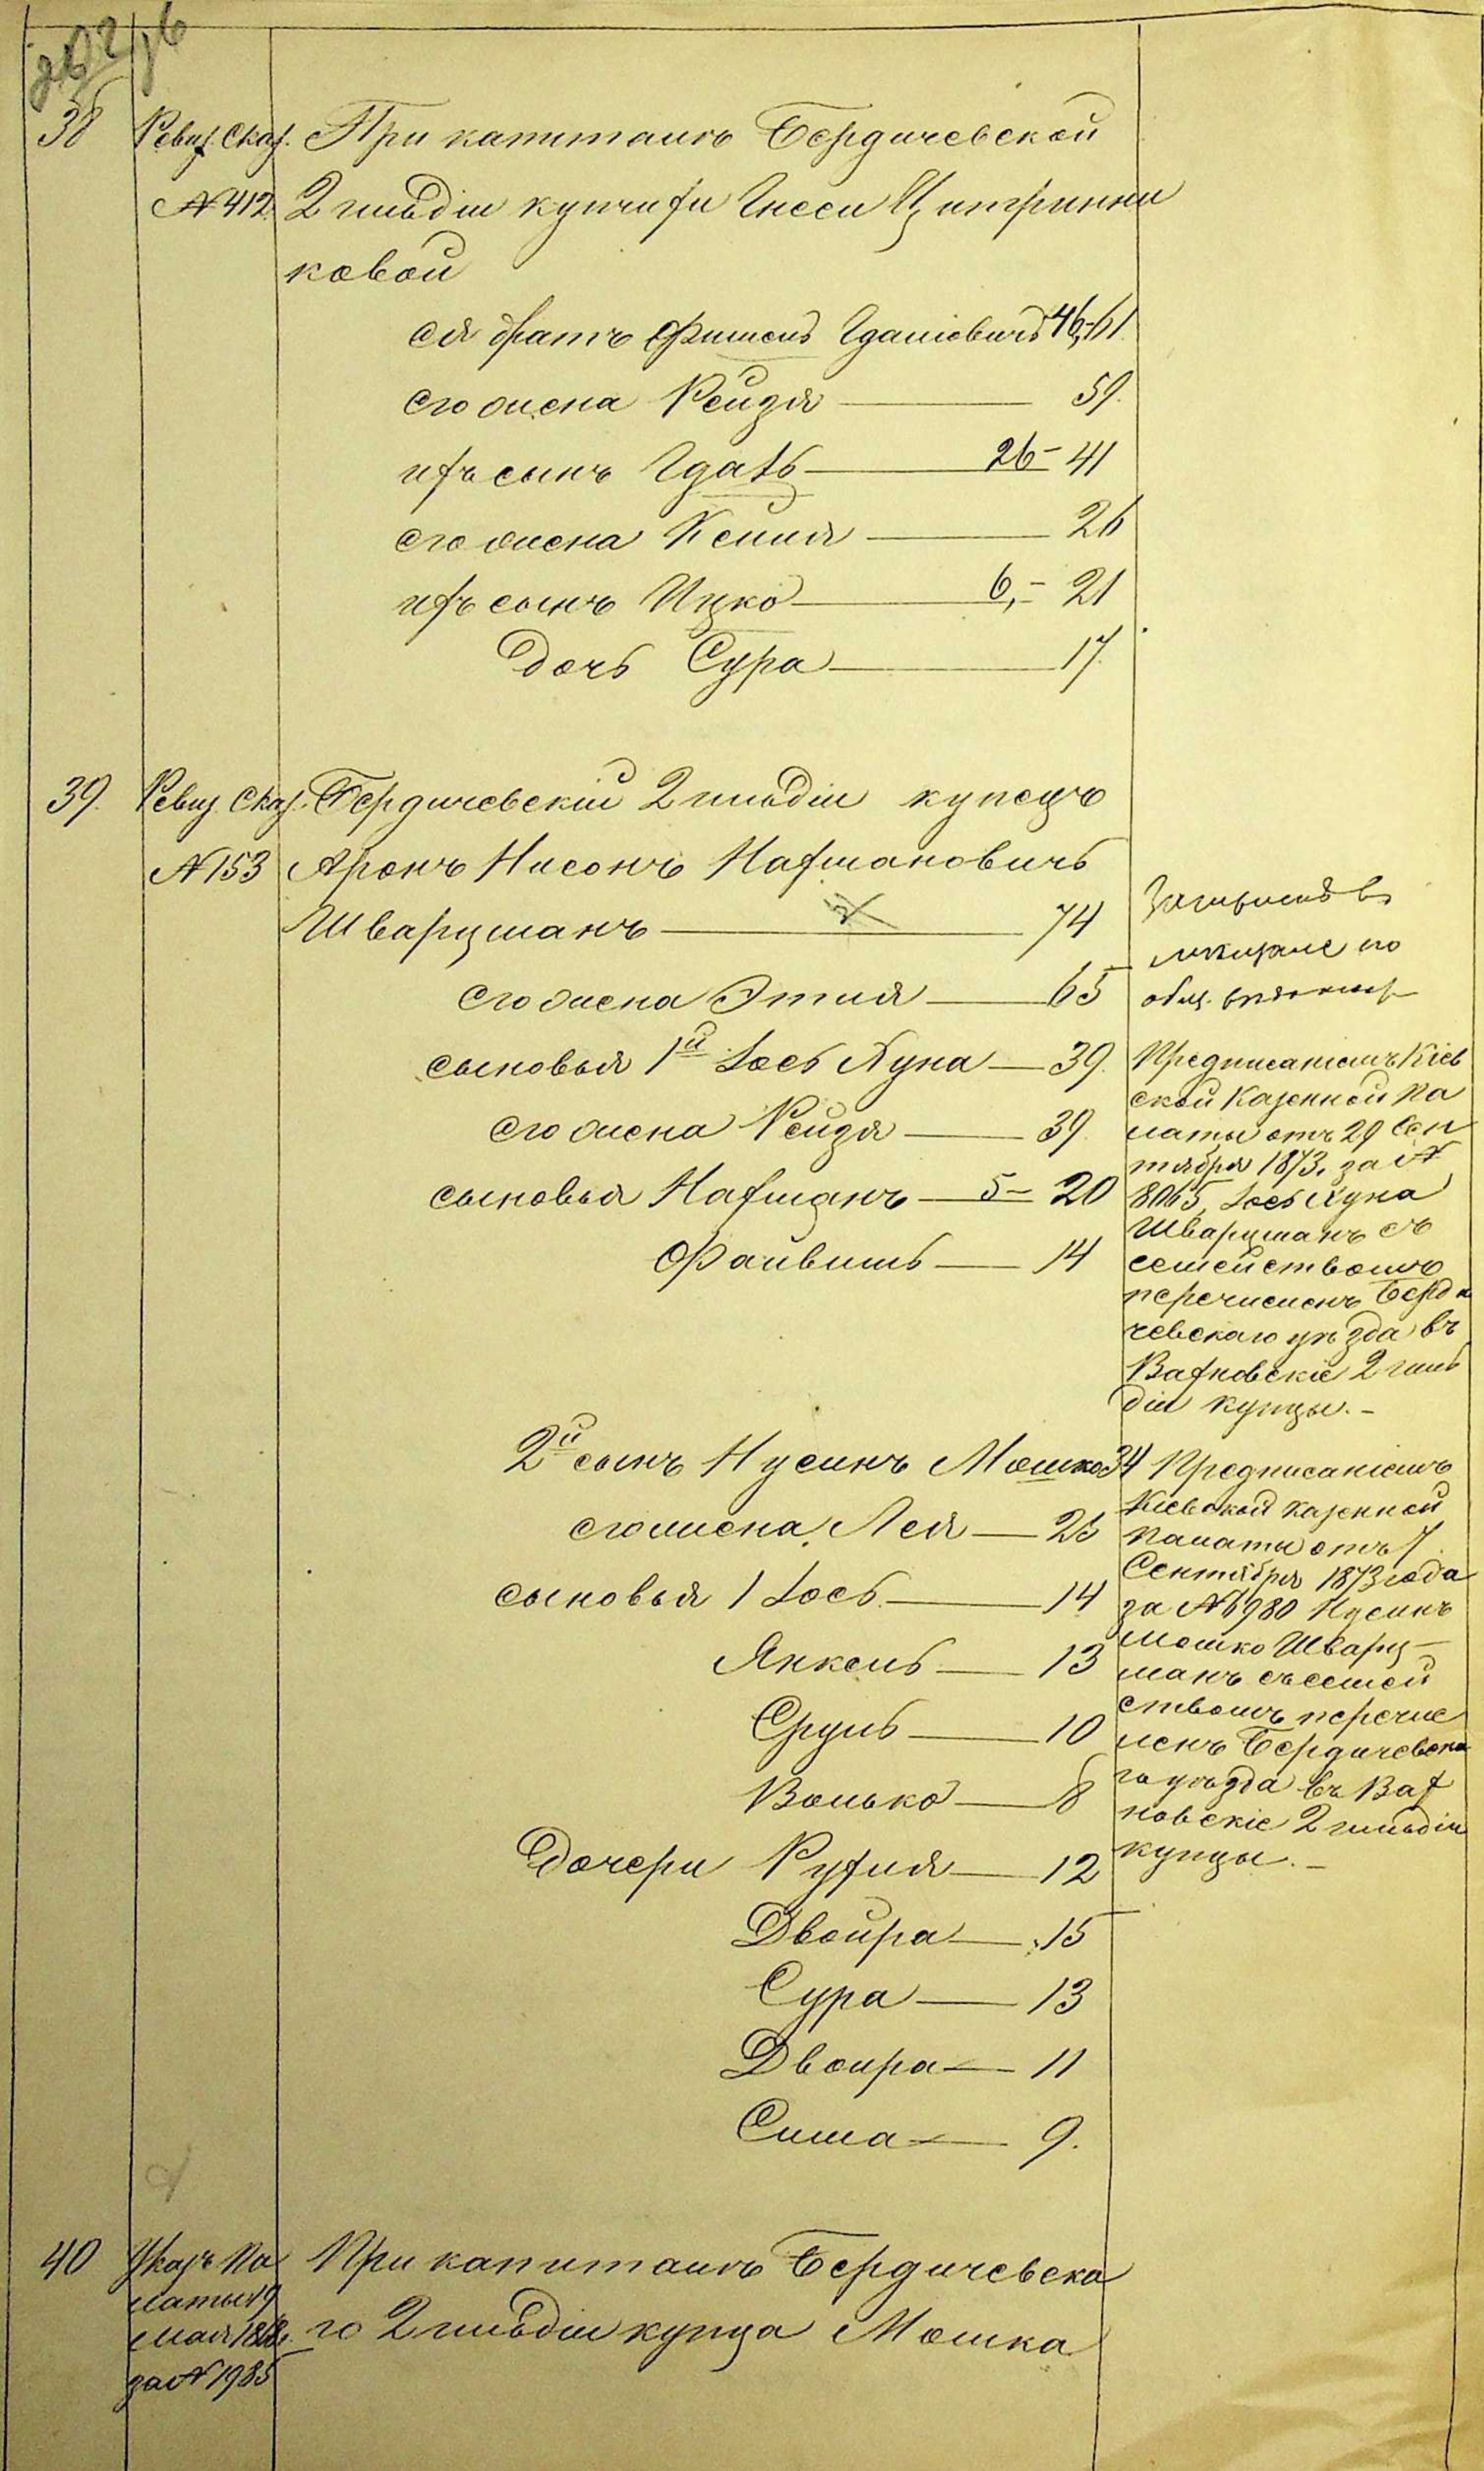 38 Ревиз. Сказ. При капиталѣ Бердичевской
№ 412. 2 гильдіи купчихи Гнеси Цитринни
ковой
ея братъ Фишель Гдаліовичъ 46,-61.
его жена Рейзя — 59.
ихъ сынъ Гдаль — 26- 41
его жена Кейля — 26
ихъ сынъ Ицко — 6,- 21
Дочь Сура — 17.
39. Ревиз. Сказ. Бердичевскій 2 гильдіи купецъ
№ 153 Аронъ Нисонъ Нахмановичъ
Шварцманъ — 74
его жена Этля — 65
сыновья 1й Іось Хуна — 39.
его жена Рейзя — 39.
сыновья Нахманъ — 5- 20
Файвишъ — 14
Предписаніемъ Кіев
ской Казенной Па
латы отъ 29 Сен
тября 1873. за №
8065, Іось Хуна
Шварцманъ съ
семействомъ
перечисленъ Берди
чевскаго уѣзда въ
Вахновскіе 2 гиль
діи купцы. -
2й сынъ Нусинъ Мошко 34
его жена Лея — 25
сыновья 1 Іось — 14
Янкель — 13
Сруль — 10
Волько — 8
Дочери Рухля — 12
Двойра — 15
Сура — 13
Двойра — 11
Сима — 9.
Предписаніемъ
Кіевской Казенной
Палаты отъ 7
Сентября 1873 года
за № 6980 Нусинъ
Мошко Шварц-
манъ съ семей
ствомъ перечис
ленъ Бердичевска
го уѣзда въ Вах
новскіе 2 гильдіи
купцы. -
40 Указъ Па При капиталѣ Бердичевска
латы 19 го 2 гильдіи купца Мошка
мая 1868.
за № 1985